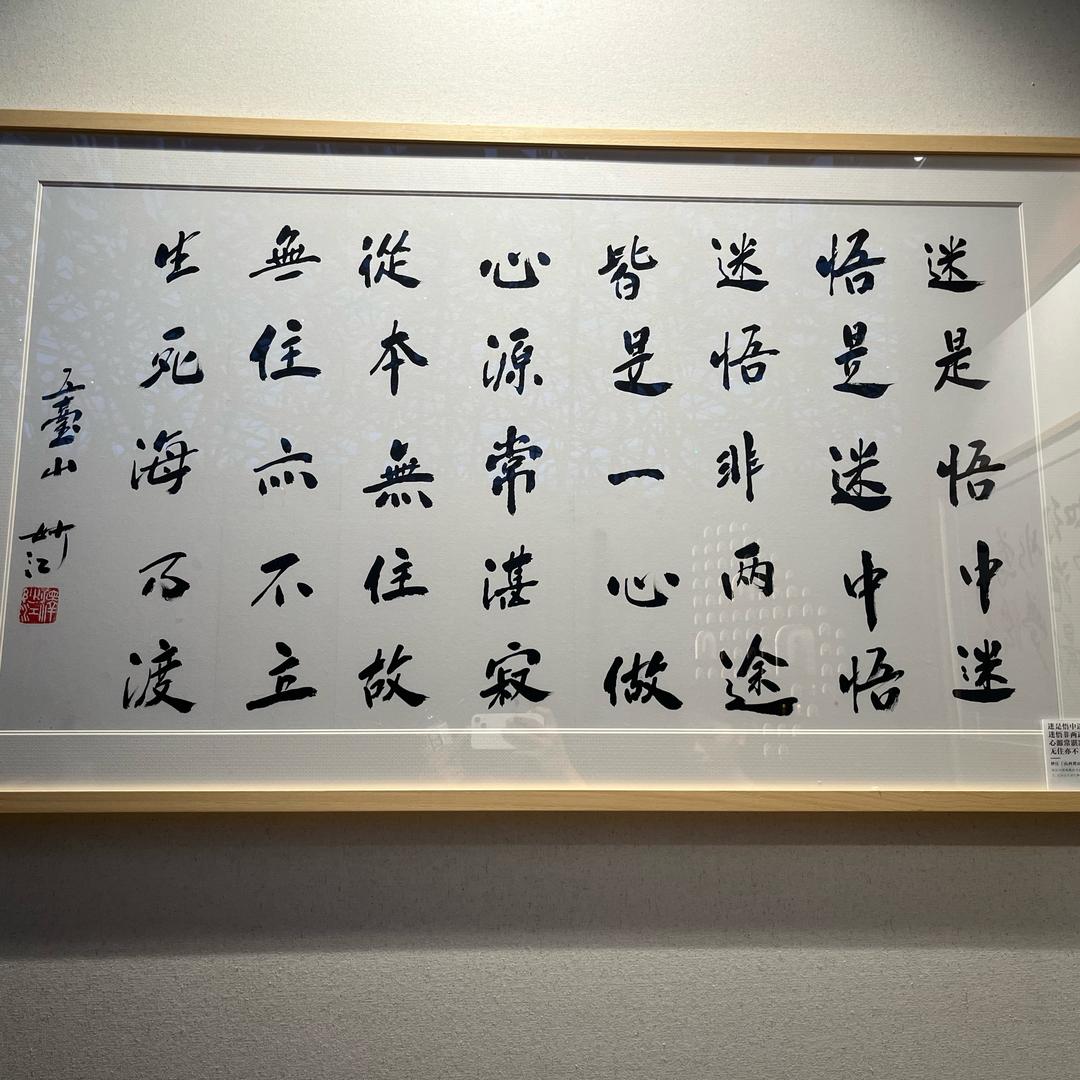 迷是悟中迷
悟是迷中悟
迷悟非两途
皆是一心做
心源常湛寂
從本無住故
無住亦不立
生死海乃渡
五臺山 妙江
迷是悟中
迷悟非两
心源常湛
无住亦不